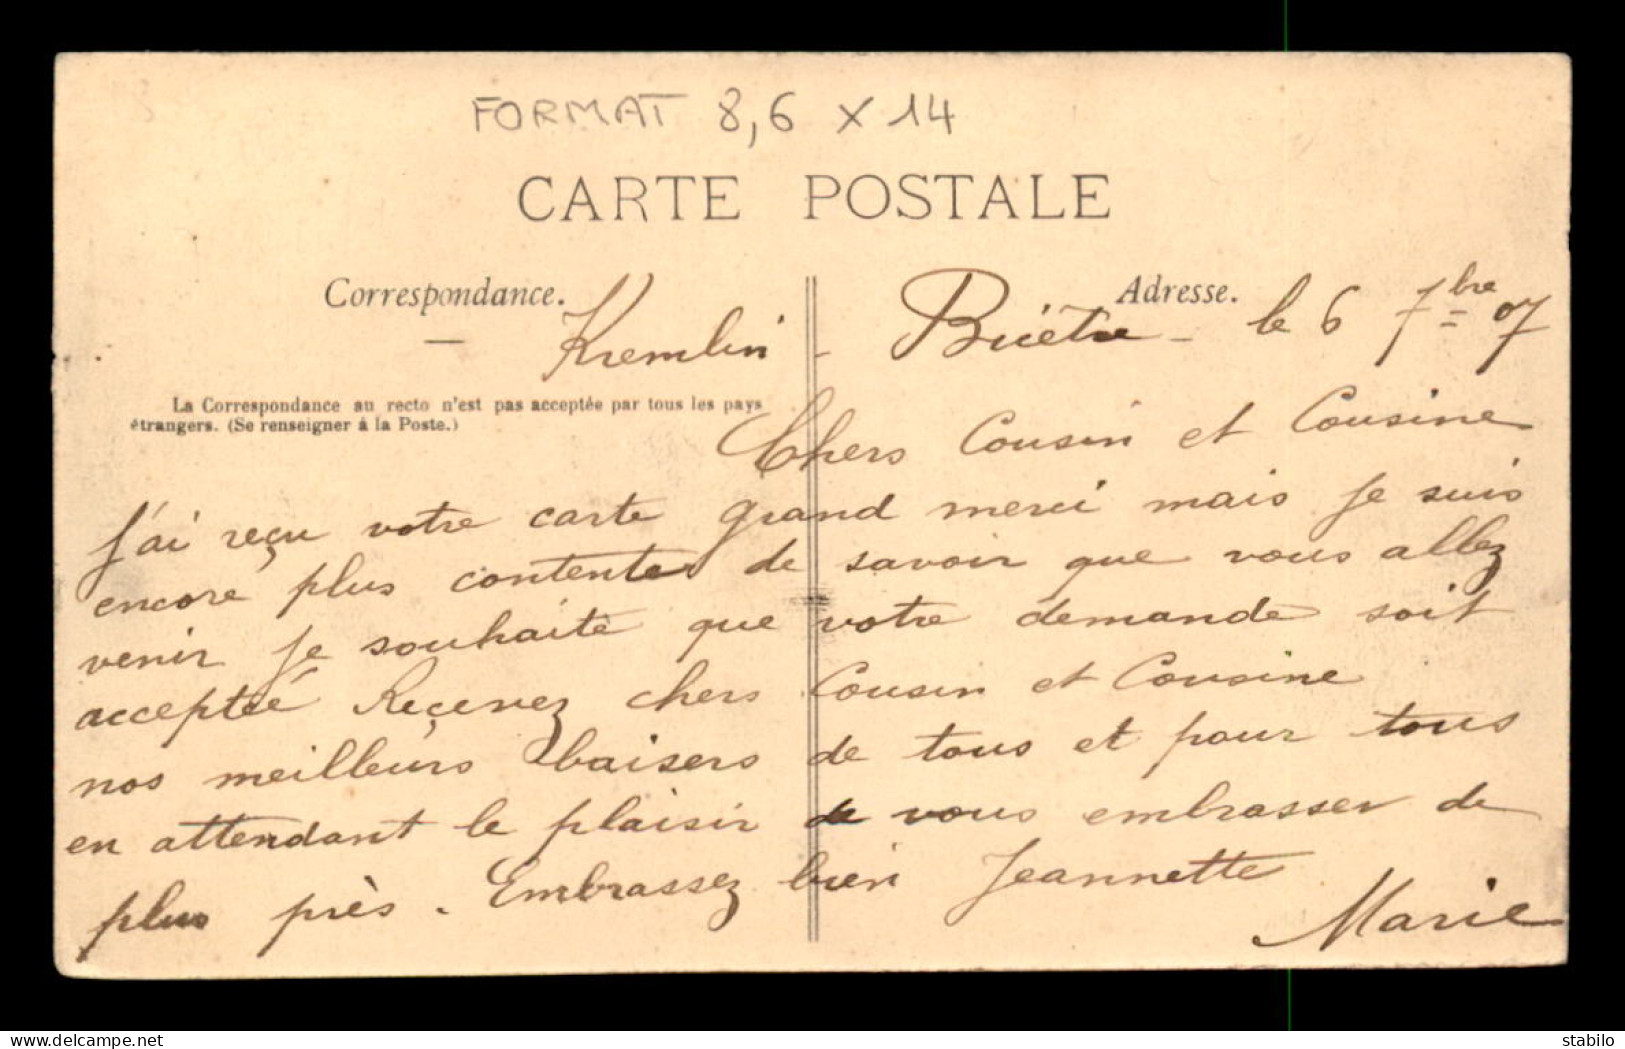 FORMAT 8,6 x 14
CARTE POSTALE
Correspondance.
Adresse.
Kremlin - Bicêtre - le 6 7bre 07
La Correspondance au recto n'est pas acceptée par tous les pays
étrangers. (Se renseigner à la Poste.)
Chers Cousin et Cousine
J'ai reçu votre carte grand merci mais je suis
encore plus contente de savoir que vous allez
venir je souhaite que votre demande soit
acceptée Reçevez chers Cousin et Cousine
nos meilleurs baisers de tous et pour tous
en attendant le plaisir de vous embrasser de
plus près. Embrassez bien Jeannette
Marie
www.delcampe.net
stabilo